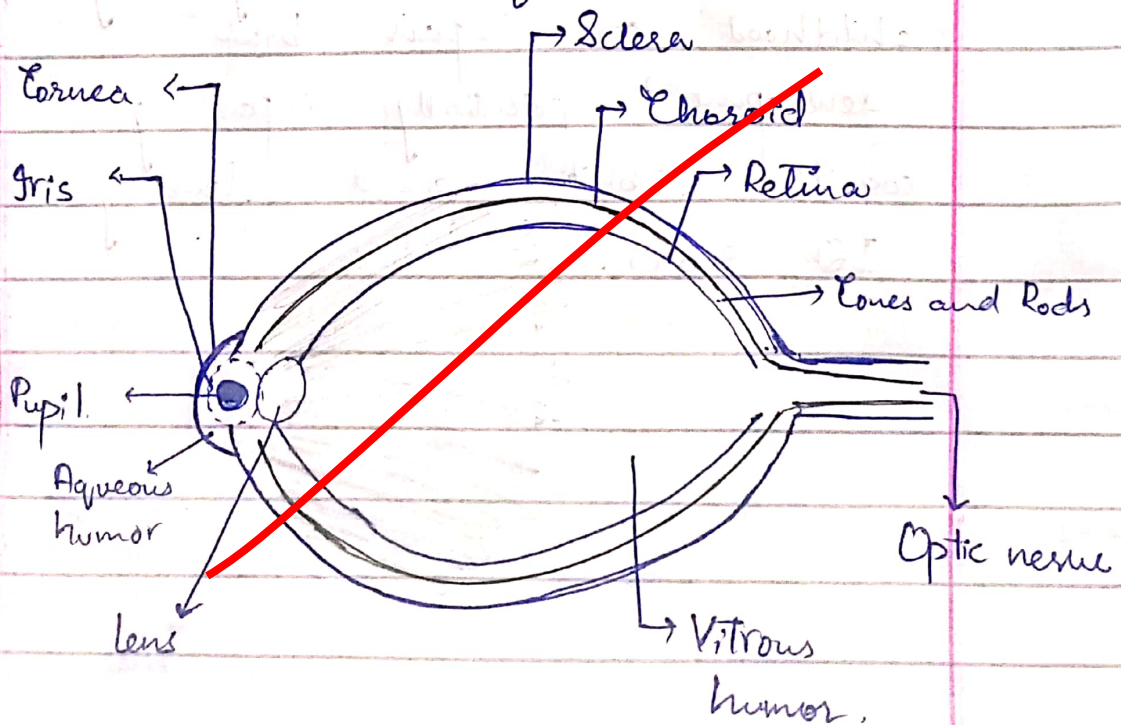 Sclera
Cornea
Choroid
Iris
Retina
Cones and Rods
Pupil.
Aqueous
humor
Optic nerve
lens
Vitrous
humor.